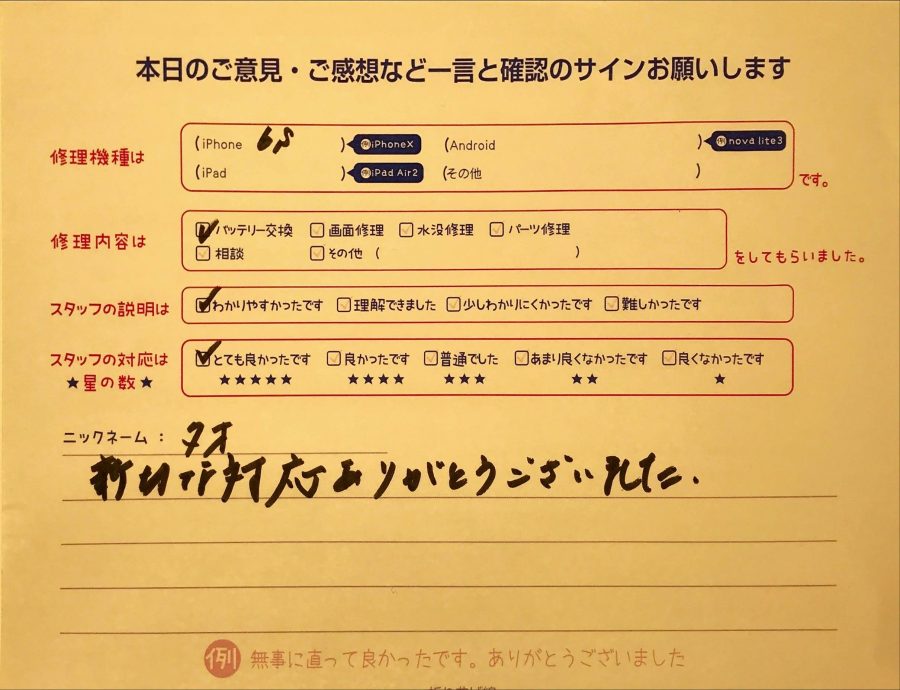 本日のご意見・ご感想など一言と確認のサインお願いします
修理機種は
(iPhone 6s ) 例iPhoneX (Android ) 例nova lite3
(iPad ) 例iPad Air2 (その他 )
です。
修理内容は
バッテリー交換 画面修理 水没修理 パーツ修理
相談 その他 ( )
をしてもらいました。
スタッフの説明は
わかりやすかったです 理解できました 少しわかりにくかったです 難しかったです
スタッフの対応は
★星の数★
とても良かったです 良かったです 普通でした あまり良くなかったです 良くなかったです
★★★★★ ★★★★ ★★★ ★★ ★
ニックネーム : タオ
対応ありがとうございました.
例 無事に直って良かったです。ありがとうございました